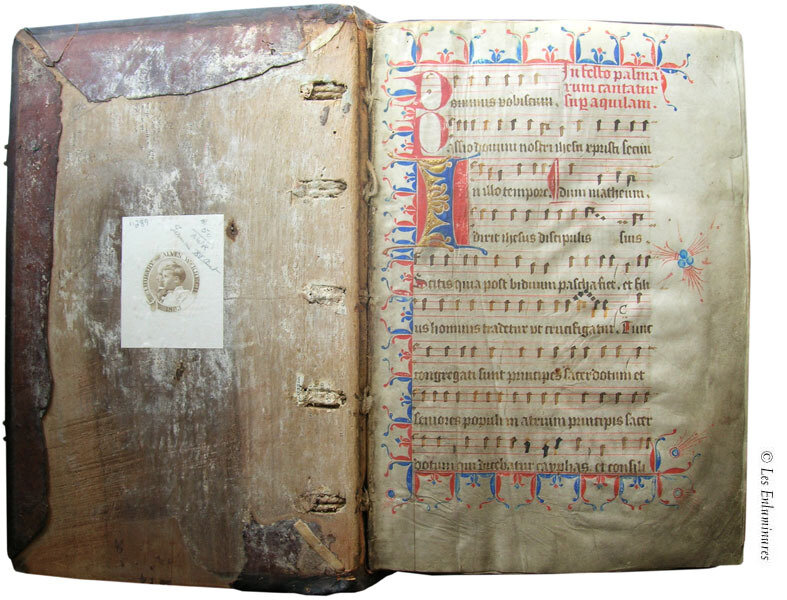 In festo palma
rum cantatur
sup aquilam.
Dominus vobiscum.
Passio domini nostri ihesu xpisti secun
In illo tempore. dum matheum.
dixit ihesus discipulis suis.
Scitis quia post biduum pascha fiet, et fili
us hominis tradetur vt crucifigatur. Tunc
congregati sunt principes sacerdotum et
seniores populi in atrium principis sacer
dotum qui dicebatur cayphas. et consili
© Les Enluminures